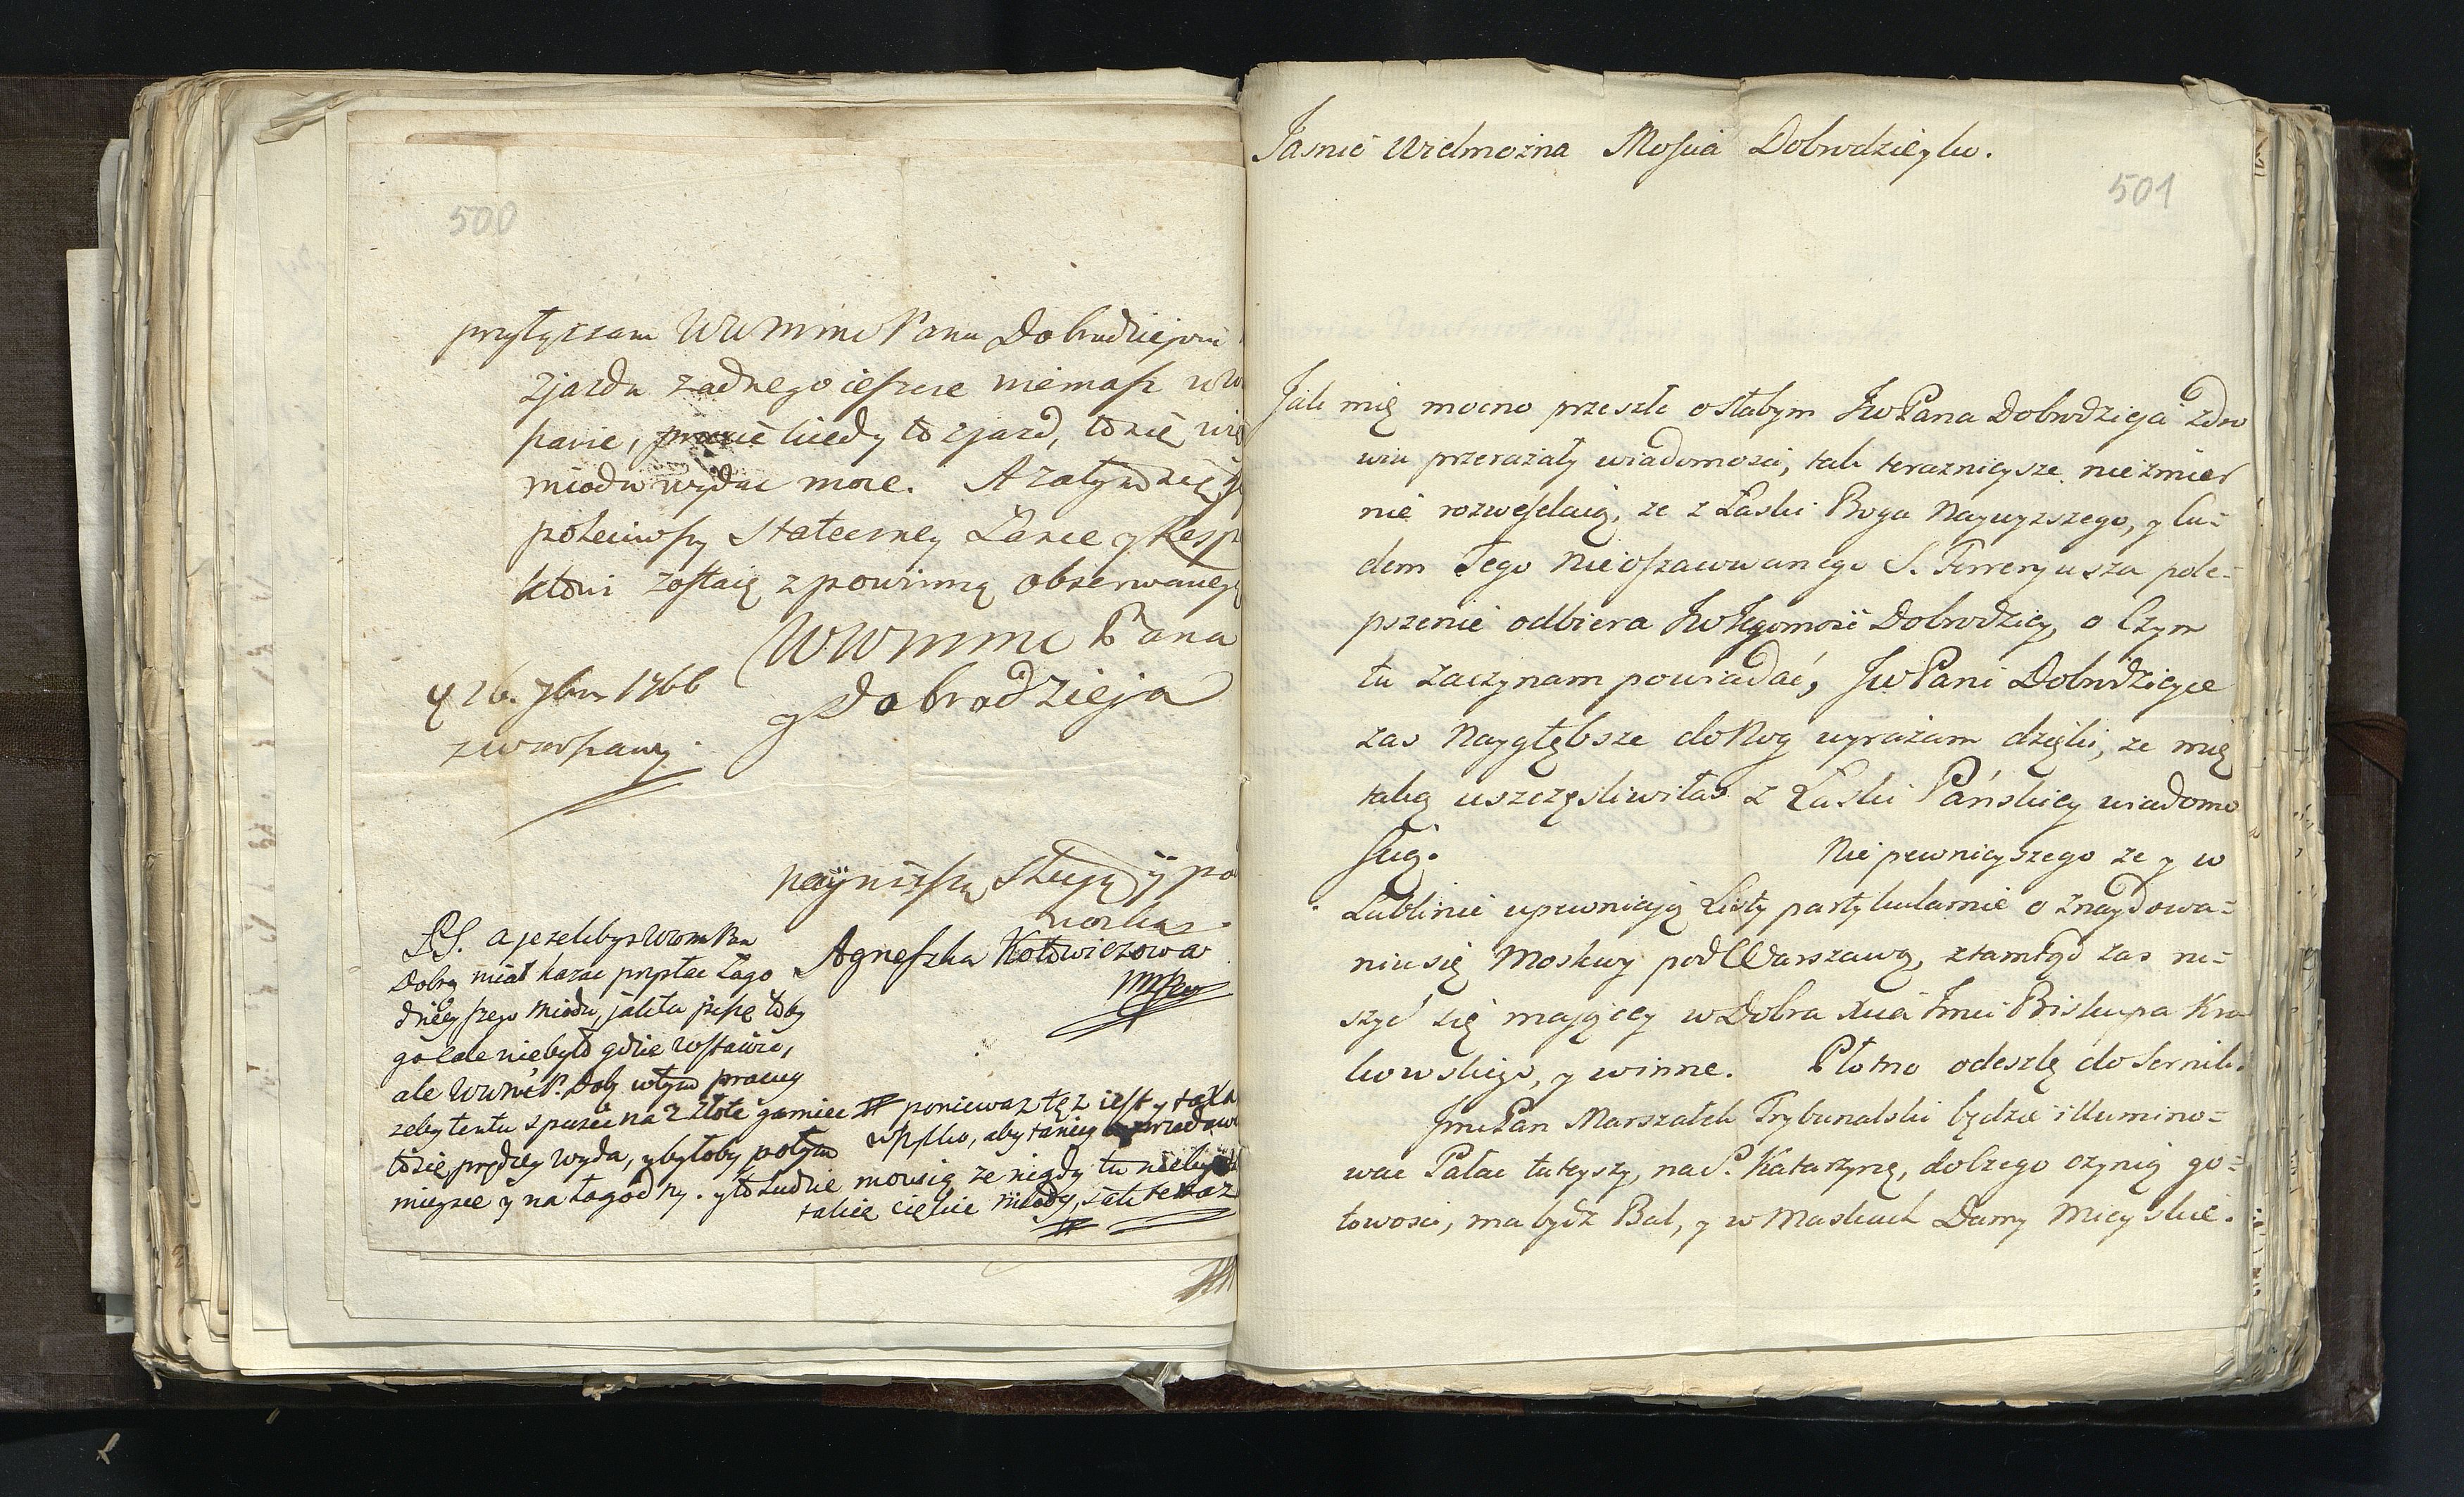 500
przyłączam WWMMC Panu Dobrodziejowi
zjazdu zadnego ieszcze niemasz w W
szawie, kiedy to zjazd, to się wię
miodu wydac moze. A zatym się
poleciwszy Stateczney Łasce y Resp
ktowi zostaię z powinną obserwancyą
WWMMC Pana
y Dobrodzieja
d 26. 7bra 1766
z Warszawy.
nayniższą sługą ÿ po
Agneszka Kotowiczowa
PS. a jezeliby WWM Pan
Dobry miał kazac przysłac łago
dnieyszego miodu, jak tu piszę toby
go ale niebyło gdzie wstawic,
ale WWMC P. Dob. w tym pracuy
zeby ten tu spuscic na 2 złote garniec # poniewaz tez iest y taxa
to się prędzey wyda, y byłoby potym aby taniey przedaw
mieysce y na łagodny. y to Ludzie mowią ze nigdy tu nieby
takie cięskie miody, jak teraz
501
Jasnie Wielmożna Mościa Dobrodzieyko.
Jak mię mocno przeszłe o słabym JwPana Dobrodzieja zdro
wiu przerażały wiadomosci, tak teraznieysze niezmier
nie rozweselaią, ze z Łaski Boga Naywyzszego, y cu=
dem Jego nieoszacowanego S. Ferreryusza pole=
pszenie odbiera JwJegomość Dobrodziey, o Czym
tu zaczynam powiadać, JwPani Dobrodzieyce
zas Naygłębsze do Nog wyrażam dzięki, ze mię
taką uszczęsliwiłas z Łaski Pańskiey wiadomo
scią. Nie pewnieyszego ze y w
Lublinie upewniają Listy partykularnie o znaydowa=
niu się Moskwy pod Warszawą, ztamtąd zas ru=
szyć się mającey w Dobra Xcia Jmci Biskupa Kra
kowskiego, y winne. Płotno odeszlę do Sernik.
JmcPan Marszałek Trybunalski będzie illumino=
wac Pałac tuteyszy, na S. Katarzynę, do czego czynią go=
towosci, ma bydz Bal, y w Maskach Damy Mieyskie.